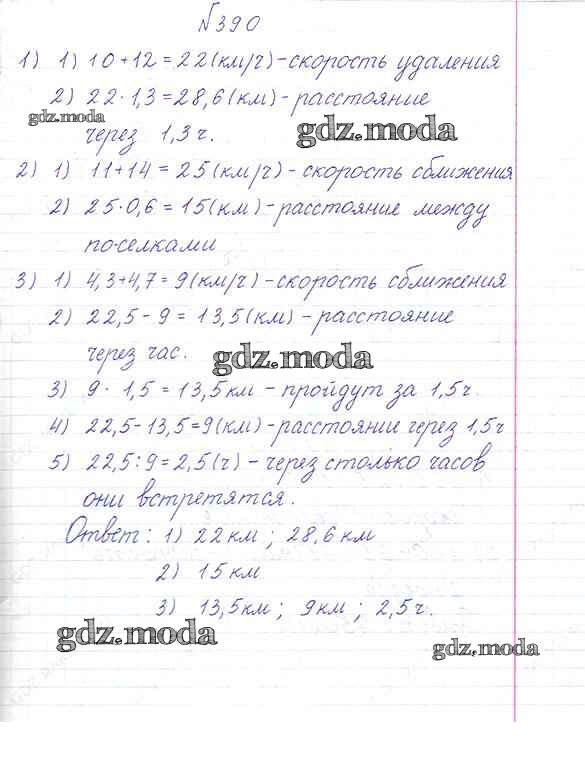 №390
1) 1) 10+12=22(км/ч)-скорость удаления
2) 22·1,3=28,6(км)-расстояние
gdz.moda
через 1,3ч.
gdz.moda
2) 1) 11+14=25(км/ч)-скорость сближения
2) 25·0,6=15(км)-расстояние между
поселками
3) 1) 4,3+4,7=9(км/ч)-скорость сближения
2) 22,5-9=13,5(км)-расстояние
через час.
gdz.moda
3) 9·1,5=13,5км-пройдут за 1,5ч.
4) 22,5-13,5=9(км)-расстояние через 1,5ч
5) 22,5:9=2,5(ч)-через столько часов
они встретятся.
Ответ: 1) 22км; 28,6км
2) 15км
3) 13,5км; 9км; 2,5ч.
gdz.moda
gdz.moda